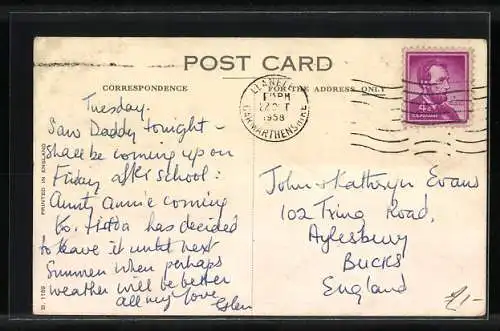 POST CARD
CORRESPONDENCE
FOR THE ADDRESS ONLY
LLANELLY
22 OCT
1958
CARMARTHENSHIRE
4c
Tuesday.
Saw Daddy tonight –
shall be coming up on
Friday after school:
Aunty Annie coming
to. has decided
to leave it until next
Summer when perhaps
weather will be better
all my love
John & Kathryn Evans
102 Tring Road,
Aylesbury
BUCKS
England
£1-
PRINTED IN ENGLAND